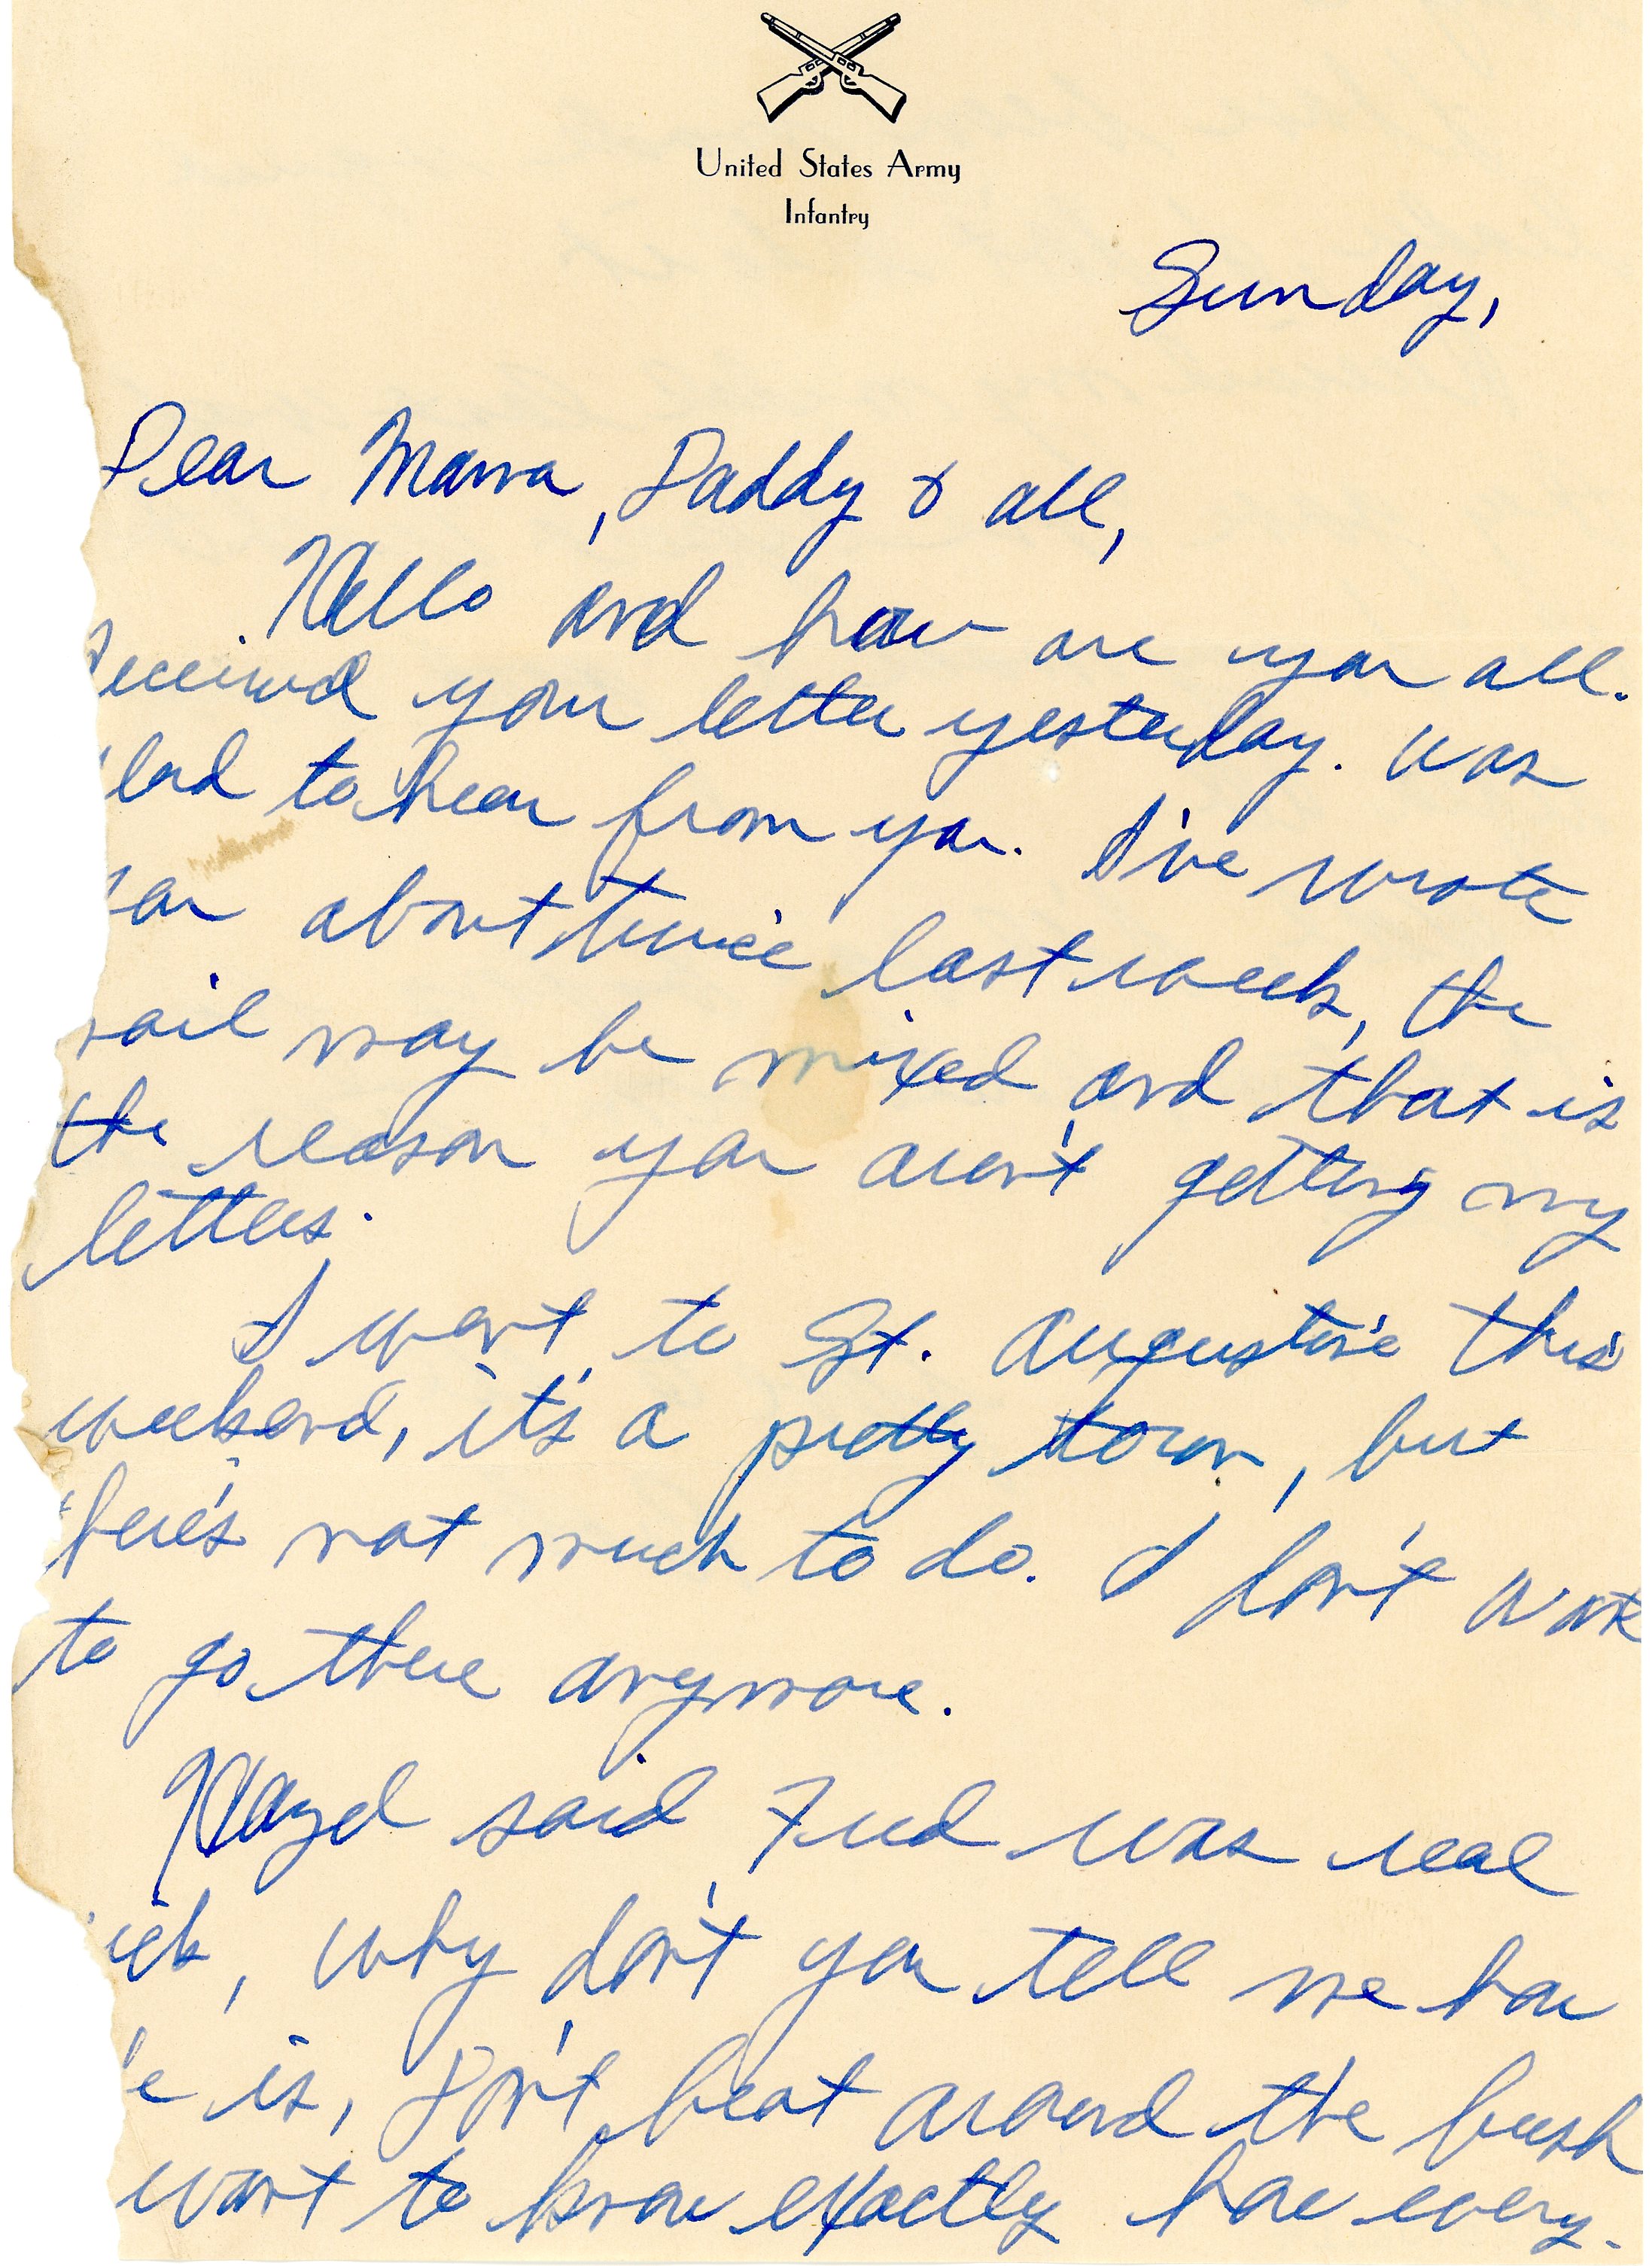 United States Army
Infantry
Sunday,
Dear Mama, Daddy & all,
Hello and how are you all.
Received your letter yesterday. Was
lad to hear from you. I've wrote
ou about twice last week, the
ail may be mixed and that is
the reason you aren't getting my
letters.
I went to St. Augustine this
weekend, it's a pretty town, but
there's not much to do. I don't want
to go there anymore.
Hazel said Fred was real
ick, why don't you tell me how
e is, Don't beat around the bush
want to know exactly how every-